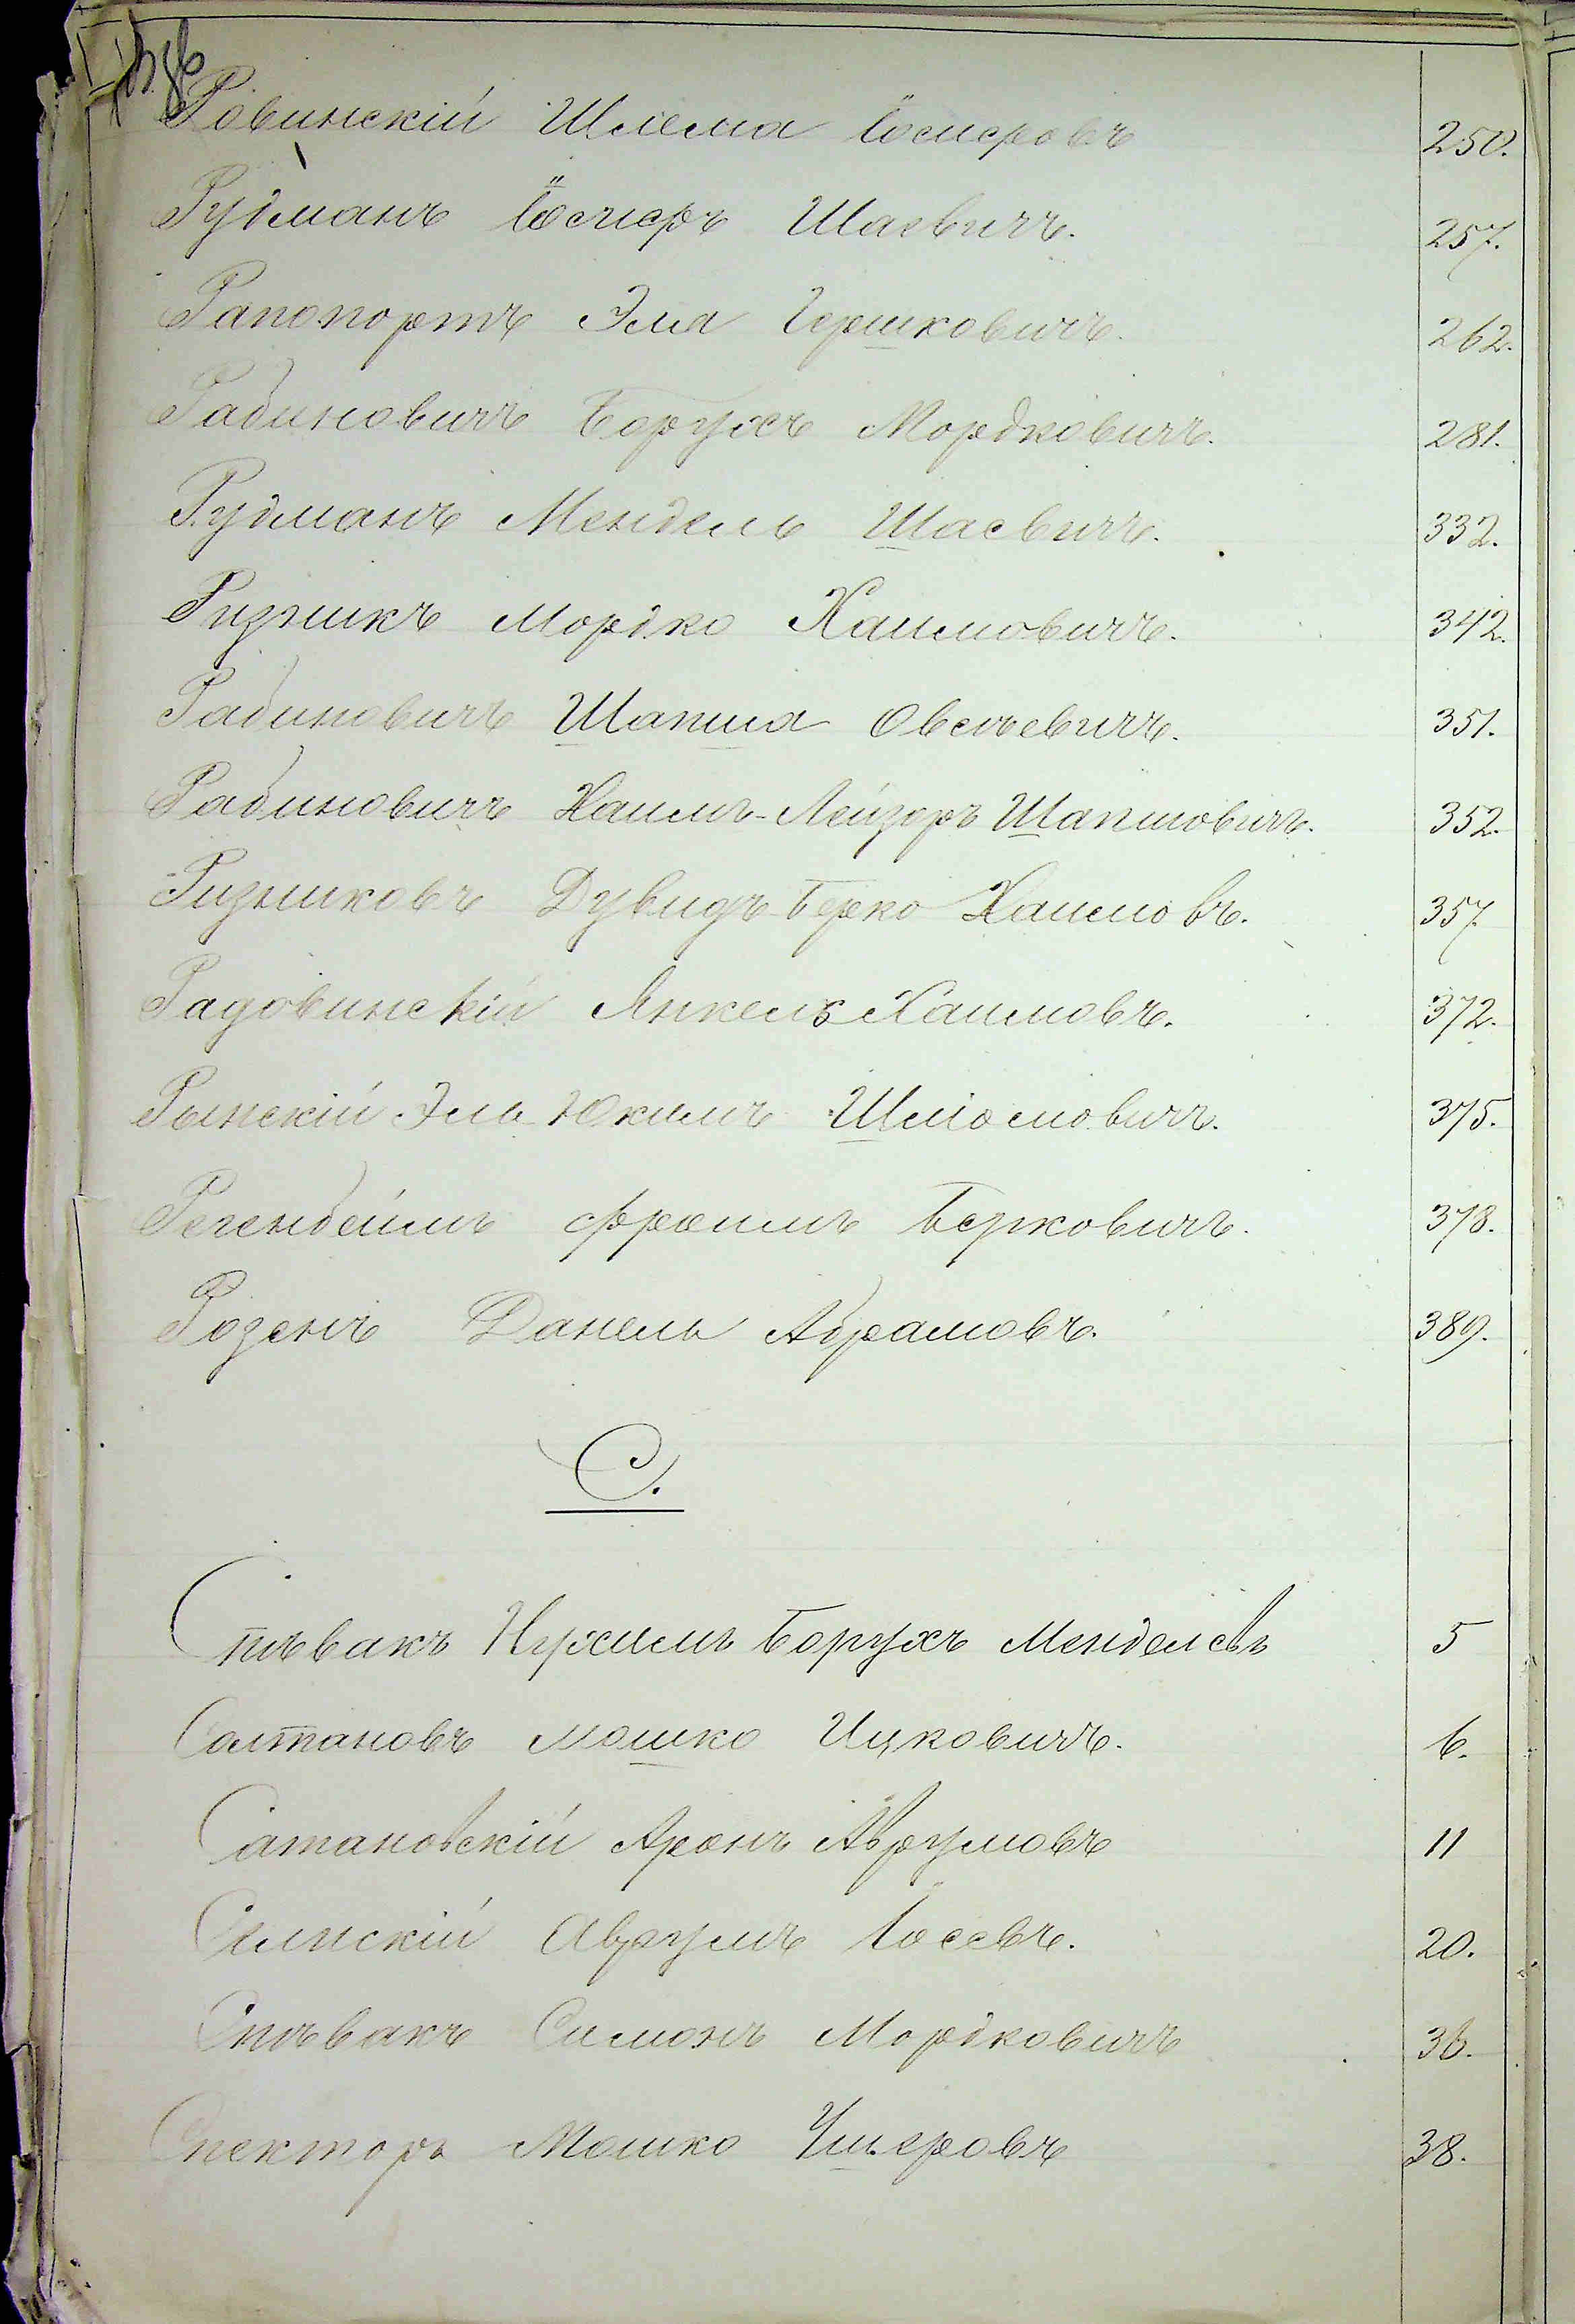 Ровинскій Шлема Іосперовъ 250.
Рудманъ Іосперъ Шаевичъ. 257.
Рапопортъ Эля Гершковичъ. 262.
Рабиновичъ Борухъ Мордковичъ. 281.
Рудманъ Мендель Шаевичъ. 332.
Ризникъ Мордко Хаимовичъ. 342.
Рабиновичъ Шапша Овсеевичъ. 351.
Рабиновичъ Хаимъ-Лейзоръ Шапшовичъ. 352.
Ризниковъ Дувидъ-Берко Хаимовъ. 357.
Радовинскій Янкель Хаимовъ. 372.
Рыпскій Эль-Юкимъ Шліомовичъ. 375.
Регенбеймъ Фроимъ Берковичъ. 378.
Розенъ Данель Абрамовъ. 389.
С.
Спѣвакъ Нухимъ Борухъ Менделевъ 5
Салтановъ Мошко Ицковичъ. 6.
Сатановскій Аронъ Аврумовъ 11
Силискій Аврумъ Іосевъ. 20.
Спѣвакъ Симонъ Мордковичъ 36.
Спекторъ Мошко Ушеровъ 38.